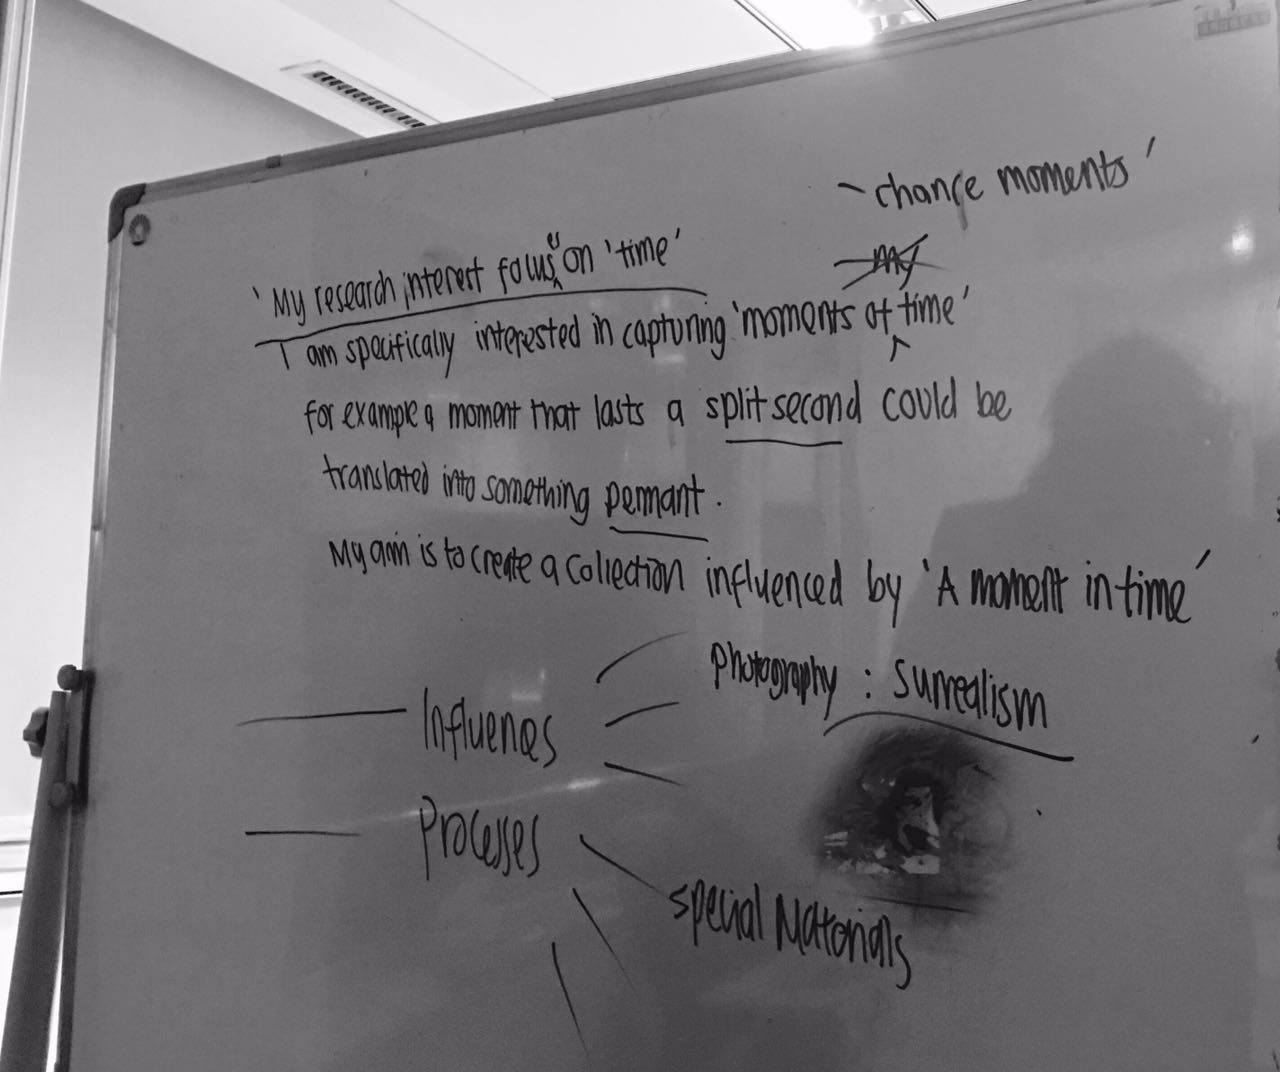 - change moments'
'My research interest focuses on 'time'
my
I am specifically interested in capturing 'moments of time'
for example a moment that lasts a split second could be
translated into something permant.
My aim is to create a collection influenced by 'A moment in time'
photography : Surrealism
Influences
Processes
special Materials